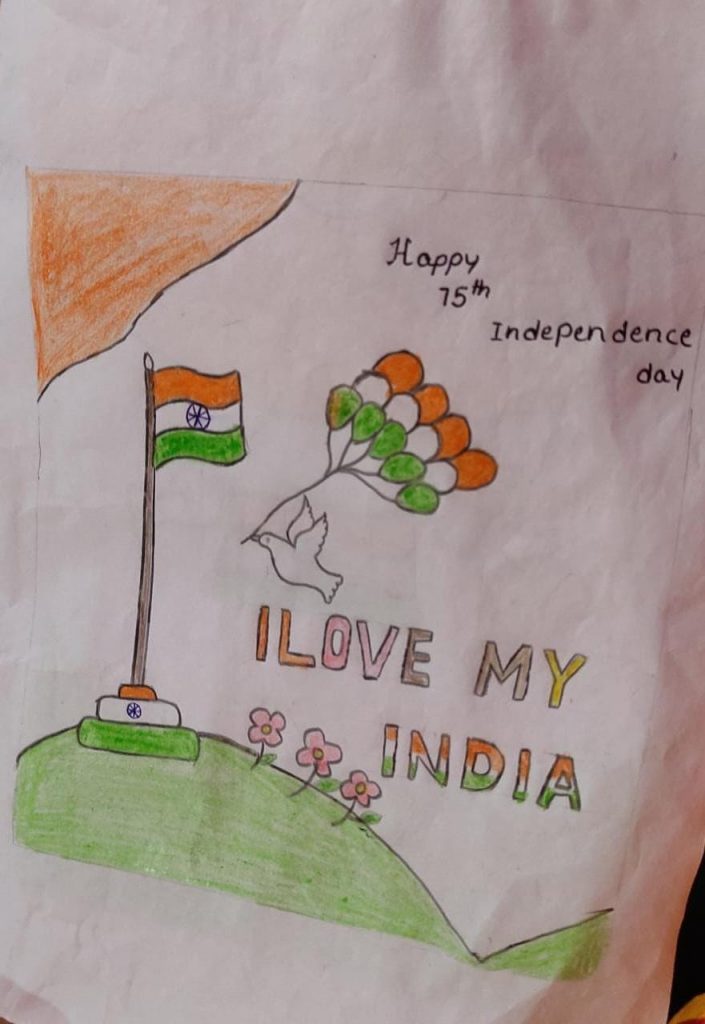 Happy
75th
Independence
day
I LOVE MY
INDIA